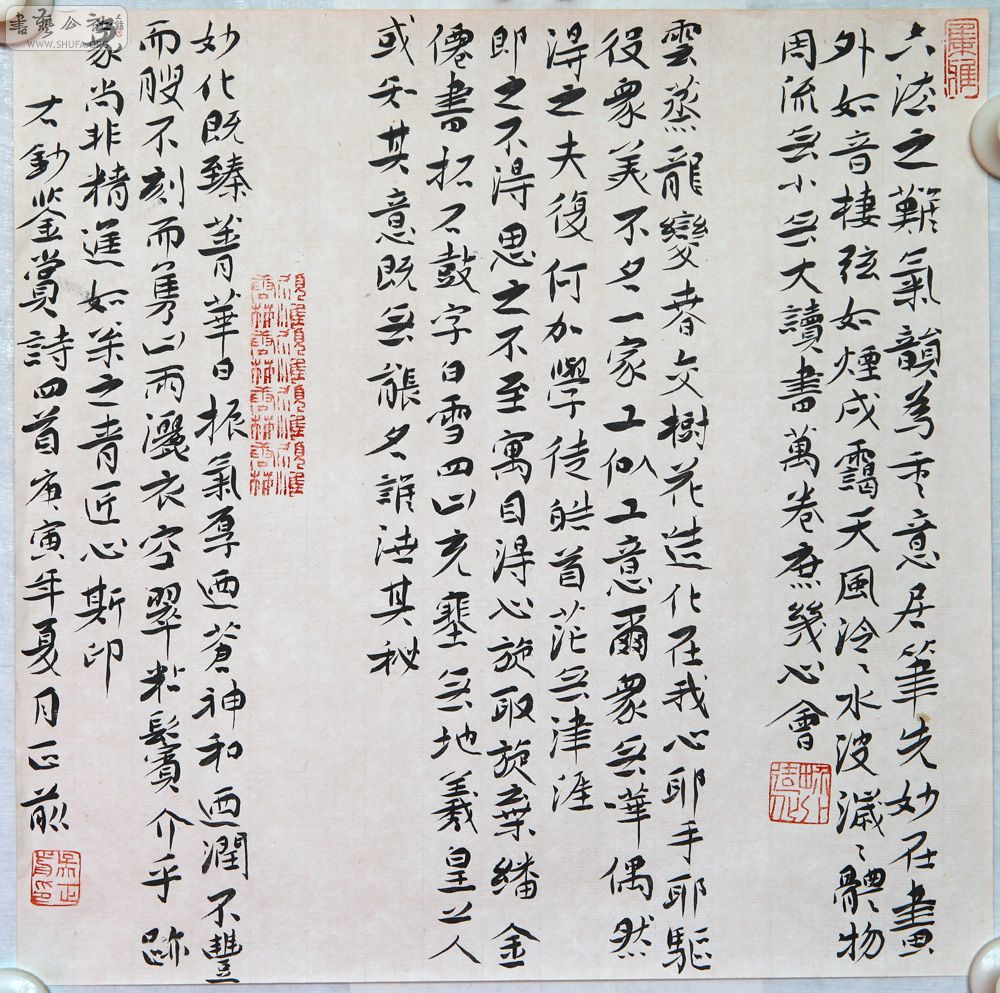 六法之難氣韻為重意居筆先妙在畫
外如音棲弦如煙成靄天風泠泠水波濊濊體物
周流無小無大讀書萬卷庶幾心會
雲蒸龍變春交樹花造化在我心耶手耶驅
役眾美不名一家工似工意爾眾無嘩偶然
得之夫復何加學徒皓首茫無津涯
即之不得思之不至寓目得心旋取旋棄繙金
僊書拓石鼓字白雪四山充塞無地羲皇上人
或知其意既無能名誰洩其秘
妙化既臻菁華日振氣厚迺蒼神和迺潤不豐
而腴不刻而雋山雨灑衣空翠粘鬢賓介乎跡
象尚非精進如荼之青匠心斯印
右鈔鑒賞詩四首庚寅年夏月正前
書藝公社
WWW.SHUFA.ORG